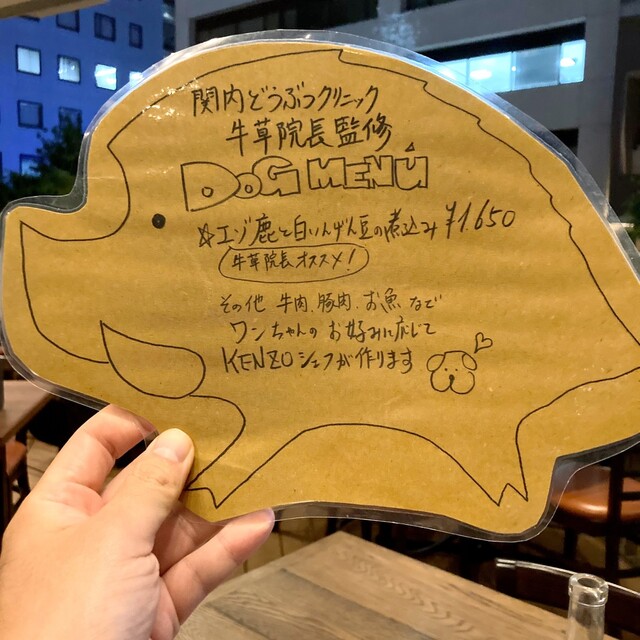 関内どうぶつクリニック
牛草院長監修
DOG MENÚ
☆エゾ鹿と白いんげん豆の煮込み ¥1.650
牛草院長オススメ!
その他 牛肉、豚肉、お魚 など
ワンちゃんの お好みに応じて
KENZOシェフが作ります